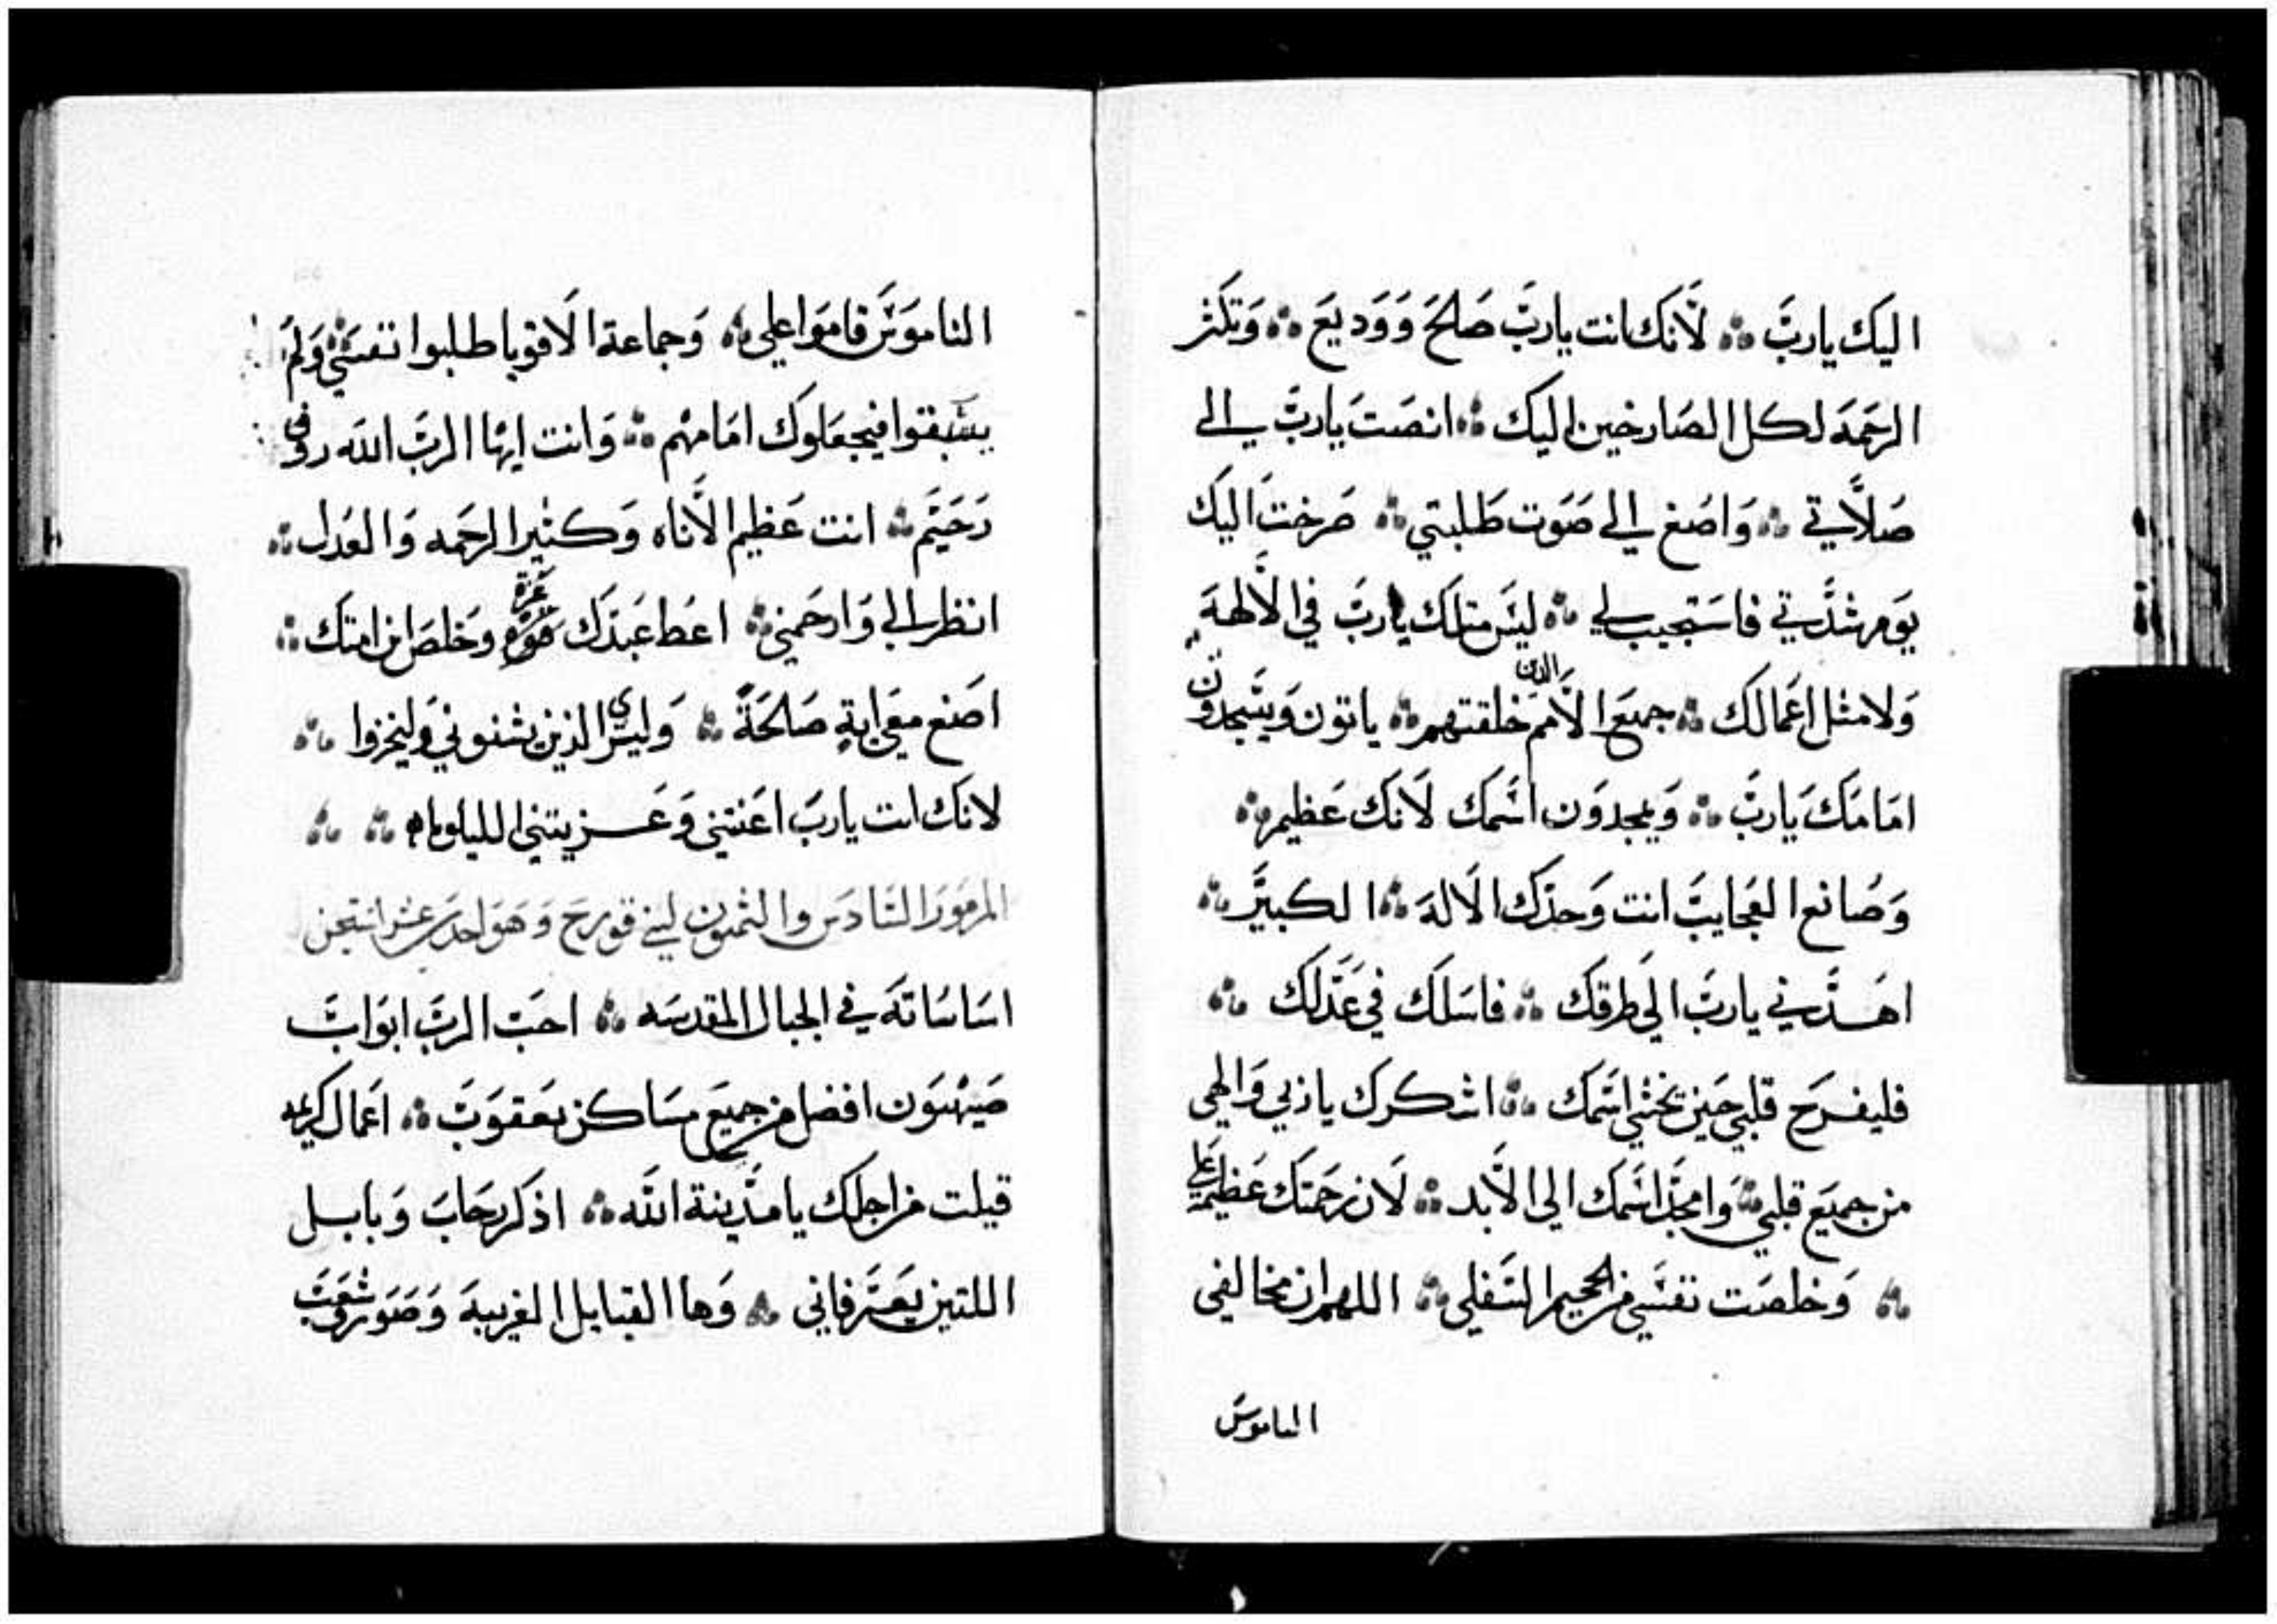 اليك يارب ؞ لانك انت يارب صالح ووديع ؞ وتكثر
الرحمة لكل الصارخين اليك ؞ انصت يارب الي
صلاتي ؞ واصغ الي صوت طلبتي ؞ صرخت اليك
يوم شدتي فاستجيب لي ؞ ليس مثلك يارب في الالهة
ولا مثل اعمالك ؞ جميع الامم الذين خلقتهم ؞ ياتون ويسجدون
امامك يارب ؞ ويمجدون اسمك لانك عظيم ؞
وصانع العجايب انت وحدك الاله ؞ الكبير ؞
اهدني يارب الي طرقك ؞ فاسلك في عدلك ؞
فليفرح قلبي حين يخشي اسمك ؞ اشكرك ياربي والهي
من جميع قلبي ؞ وامجد اسمك الي الابد ؞ لان رحمتك عظيمة علي
؞ وخلصت نفسي من الجحيم السفلي ؞ اللهم ان مخالفي
الناموس
الناموس قاموا علي ؞ وجماعة الاقويا طلبوا نفسي ؞ ولم
يسبقوا فيجعلوك امامهم ؞ وانت ايها الرب الله روف
رحيم ؞ انت عظيم الاناه وكثير الرحمه والعدل ؞
انظر الي وارحمني ؞ اعط عبدك عزة وخلص ابن امتك ؞
اصنع معي اية صالحة ؞ وليري الذين يشنوني وليخزوا ؞
لانك انت يارب اعنتني وعزيتني الليلويا ؞ ؞
المزمور السادس والثمنون لبني قورح وهو احد عشر استيخن
اساساته في الجبال المقدسه ؞ احب الرب ابواب
صيهيون افضل من جميع مساكن يعقوب ؞ اعمال كريمه
قيلت من اجلك يا مدينة الله ؞ اذكر رحاب وبابل
اللتين يعرفاني ؞ وها القبايل الغريبة وصور وشعب